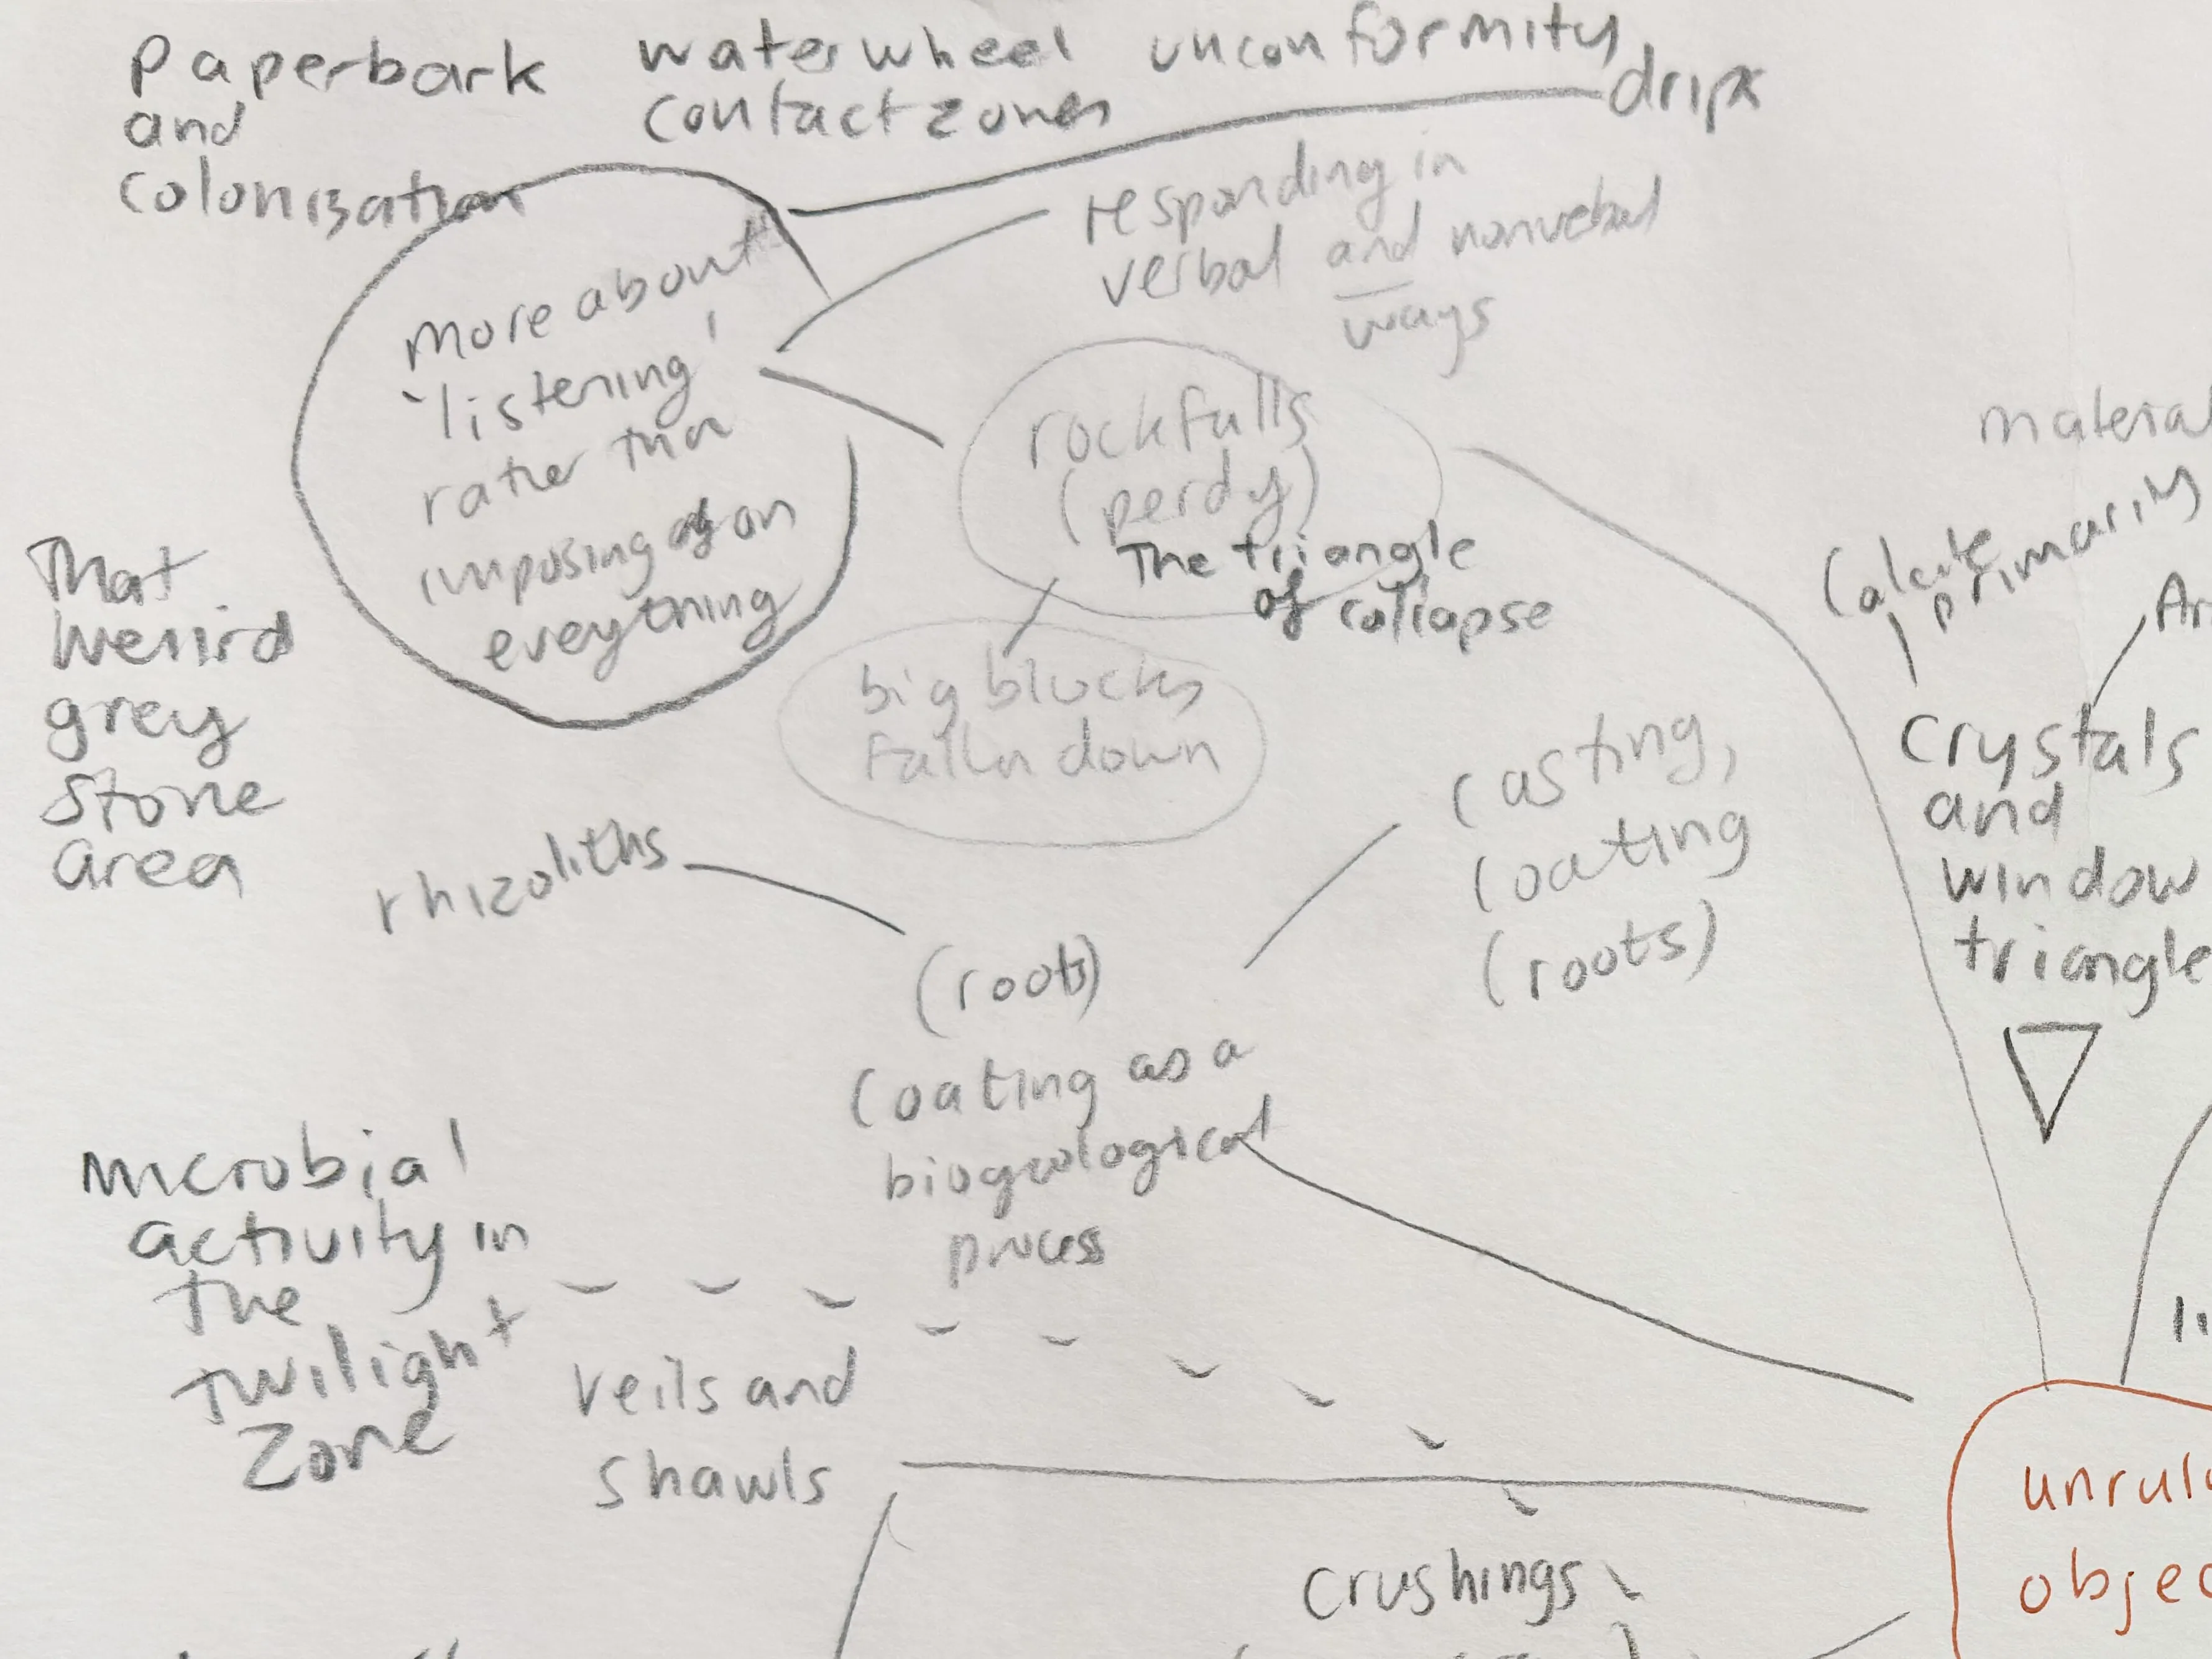 Paperbark
and
colonisation
waterwheel unconformity
contact zones
drips
responding in
verbal and nonvebal
ways
more about
'listening'
rather than
imposing on
everything
rockfalls
(perdy)
The triangle
of collapse
big blocks
falln down
That
weiird
grey
stone
area
material
Calcite
primarily
Ar
crystals
and
window
triangle
casting,
coating
(roots)
rhizoliths
(roots)
coating as a
biogeological
process
microbial
activity in
the
twilight
zone
veils and
shawls
crushings
unruly
objec